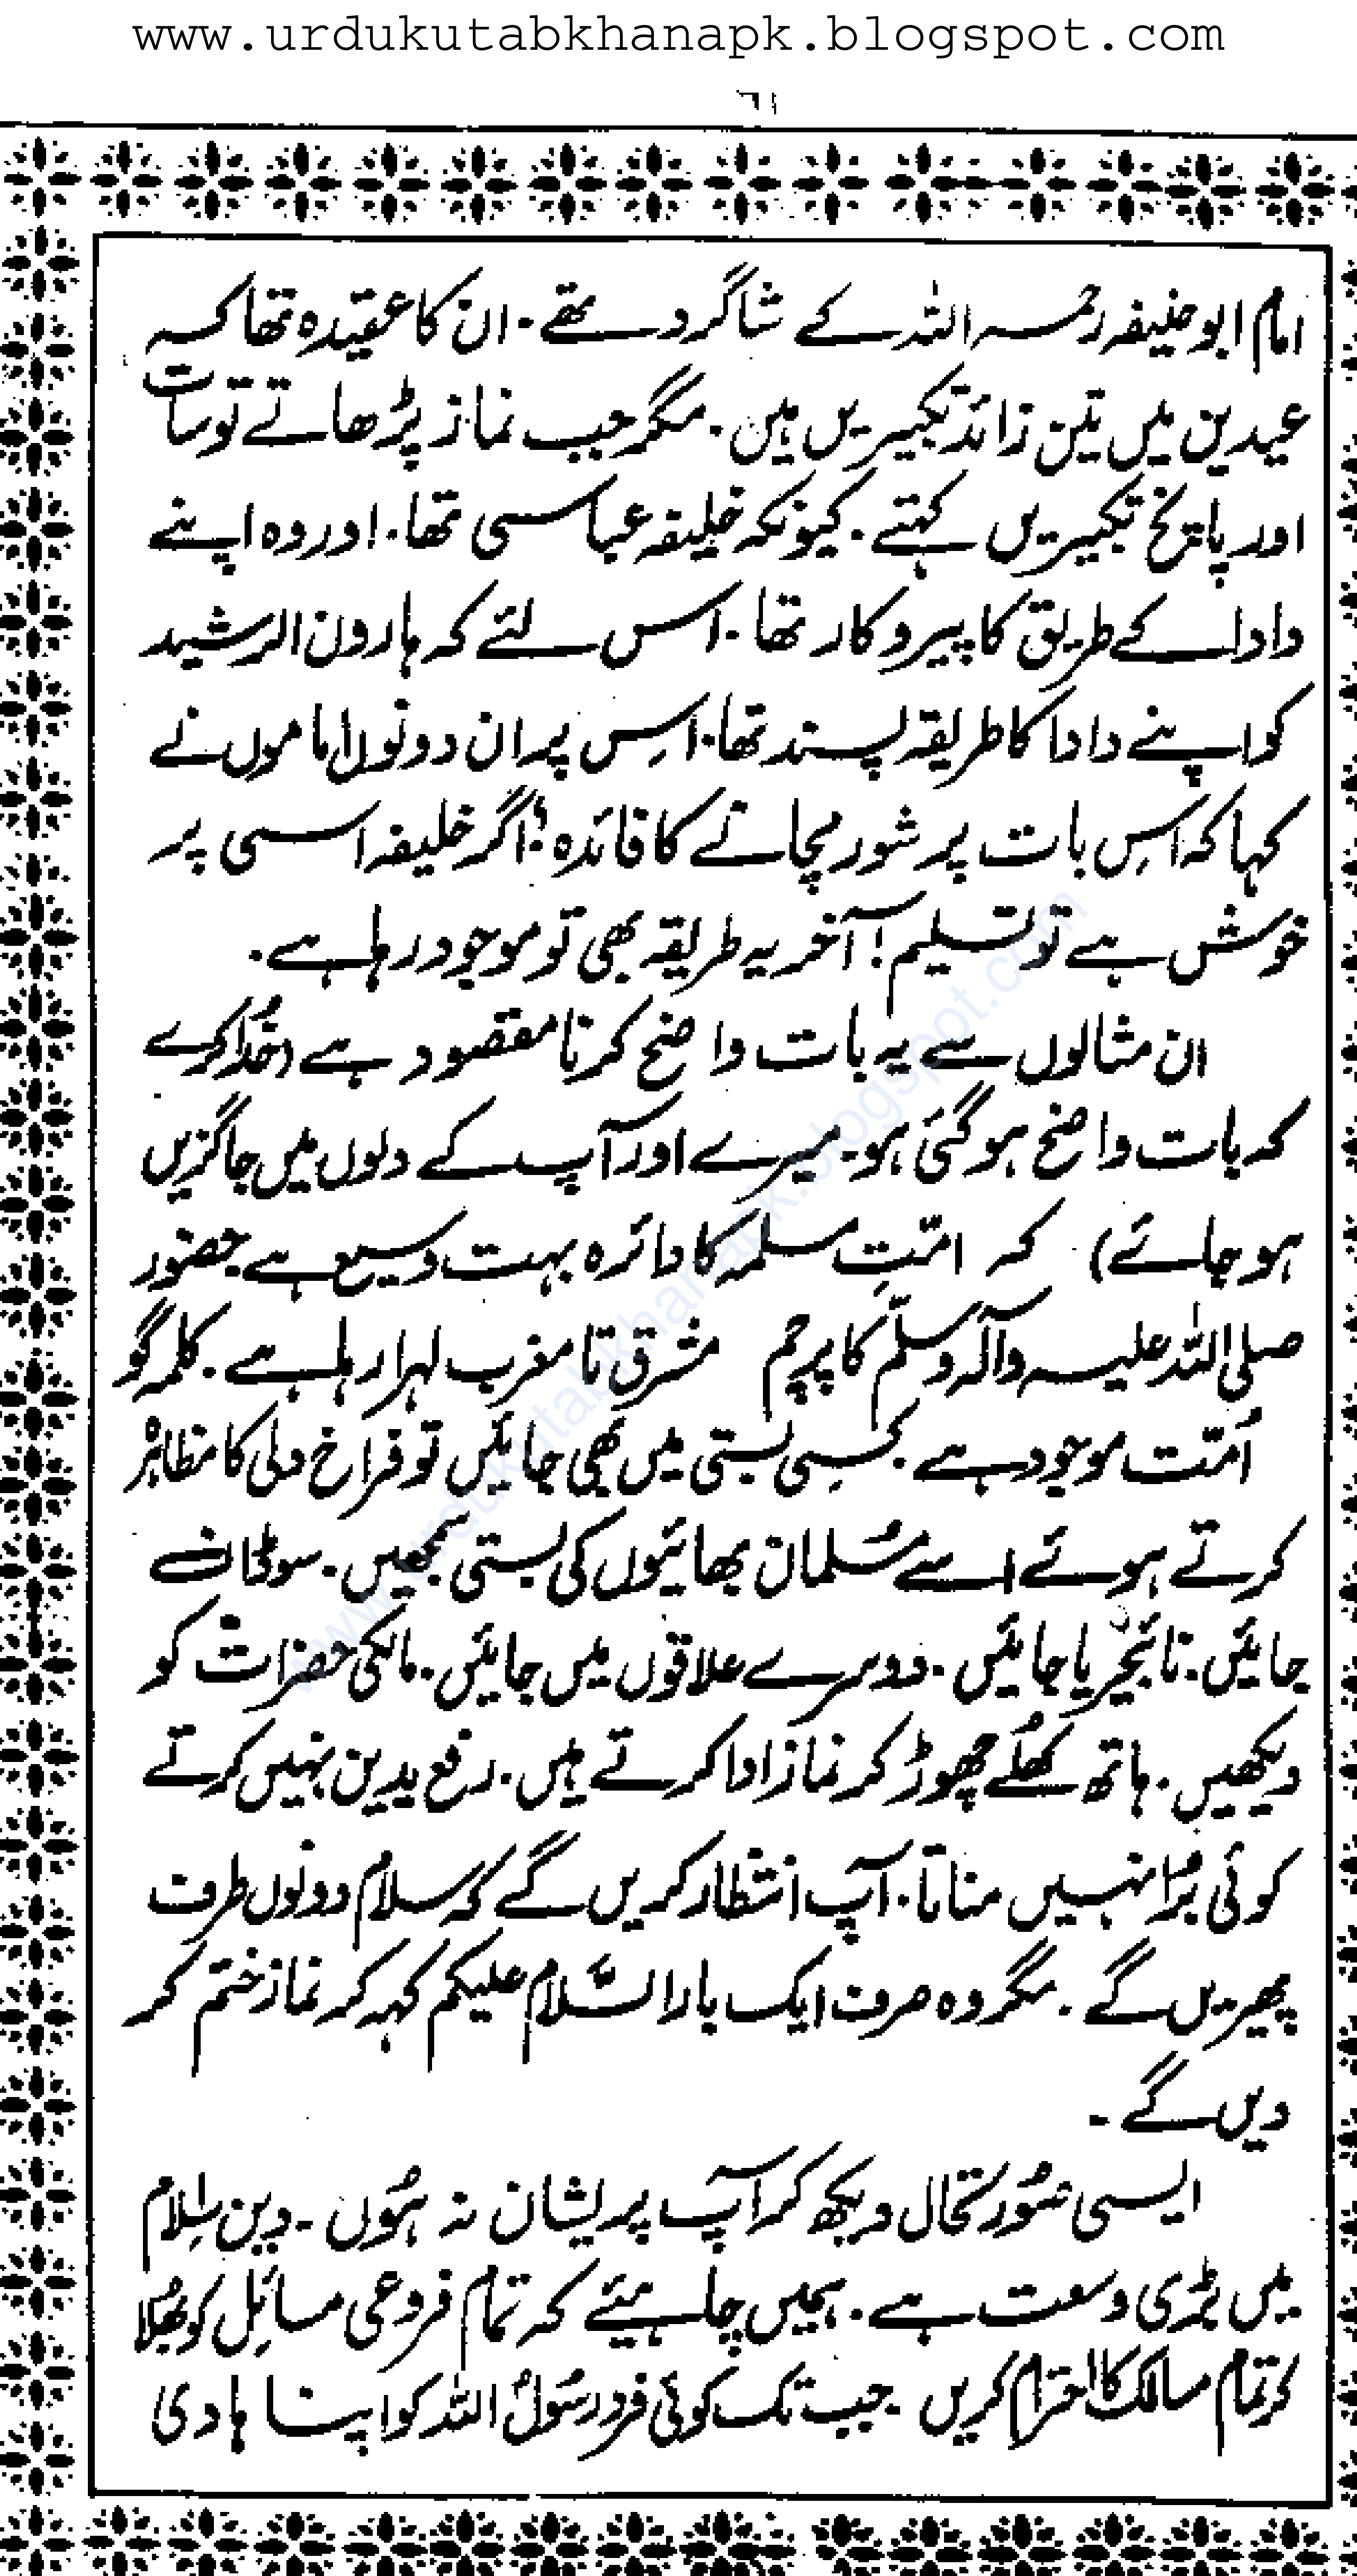 www.urdukutabkhanapk.blogspot.com
٦١
امام ابوحنیفہ رحمہ اللہ کے شاگرد تھے۔ ان کا عقیدہ تھا کہ
عیدین میں تین زائد تکبیریں ہیں۔ مگر جب نماز پڑھاتے تو سات
اور پانچ تکبیریں کہتے۔ کیونکہ خلیفہ عباسی تھا۔ اور وہ اپنے
دادا کے طریق کا پیروکار تھا۔ اس لئے کہ ہارون الرشید
کو اپنے دادا کا طریقہ پسند تھا۔ اِس پر ان دونوں اماموں نے
کہا کہ اِس بات پر شور مچانے کا فائدہ؟ اگر خلیفہ اسی پر
خوش ہے تو تسلیم! آخر یہ طریقہ بھی تو موجود رہا ہے۔
ان مثالوں سے یہ بات واضح کرنا مقصود ہے (خُدا کرے
کہ بات واضح ہو گئی ہو۔ میرے اور آپ کے دلوں میں جاگزیں
ہو جائے) کہ امّتِ مسلمہ کا دائرہ بہت وسیع ہے حضور
صلی اللہ علیہ وآلہ وسلّم کا پرچم مشرق تا مغرب لہرا رہا ہے۔ کلمہ گو
اُمّت موجود ہے۔ کسی بستی میں بھی جائیں تو فراخ دلی کا مظاہرہ
کرتے ہوئے اسے مُسلمان بھائیوں کی بستی سمجھیں۔ سوڈان
جائیں۔ نائیجیریا جائیں۔ دوسرے علاقوں میں جائیں۔ مالکی حضرات کو
دیکھیں۔ ہاتھ کھُلے چھوڑ کر نماز ادا کرتے ہیں۔ رفع یدین نہیں کرتے
کوئی بُرا نہیں مناتا۔ آپ انتظار کریں گے کہ سلام دونوں طرف
پھیریں گے۔ مگر وہ صرف ایک بار السَّلام علیکم کہہ کر نماز ختم کر
دیں گے۔
ایسی صُورتحال دیکھ کر آپ پریشان نہ ہُوں۔ دین اسلام
میں بڑی وسعت ہے۔ ہمیں چاہیئے کہ تمام فروعی مسائل کو بھُلا
کر تمام مسالک کا احترام کریں۔ جب تک کوئی فرد رسُولُ اللہ کو اپنا ہادی
www.urdukutabkhanapk.blogspot.com